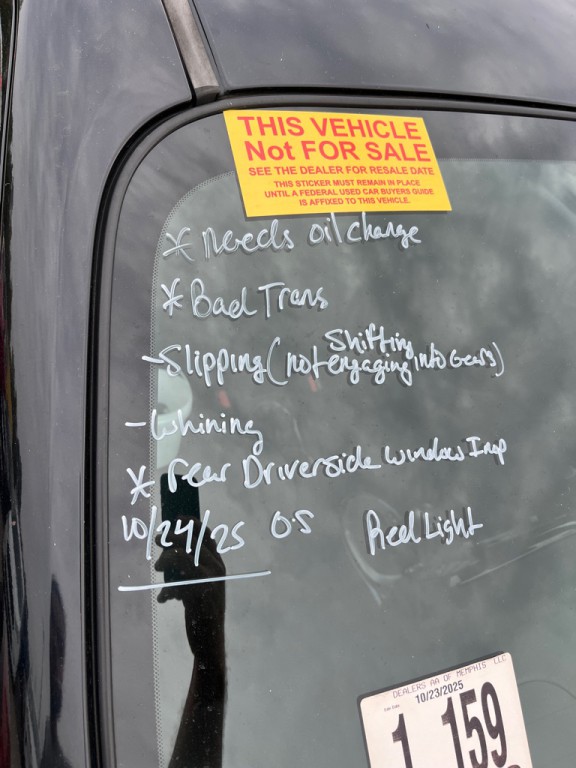 THIS VEHICLE
Not FOR SALE
SEE THE DEALER FOR RESALE DATE
THIS STICKER MUST REMAIN IN PLACE
UNTIL A FEDERAL USED CAR BUYERS GUIDE
IS AFFIXED TO THIS VEHICLE.
* Needs oil change
* Bad Trans
- Slipping (not engaging Shifting into Gears)
- Whining
* rear Driverside window Inop
10/24/25 O.S Red Light
DEALERS AA OF MEMPHIS LLC
10/23/2025
1 159